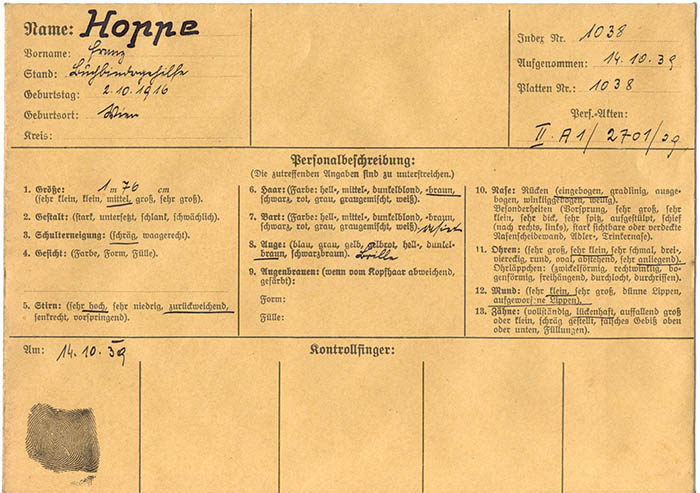 Name: Hoppe
Vorname: Franz
Stand: Buchbindergehilfe
Geburtstag: 2.10.1916
Geburtsort: Wien
Kreis:
Index Nr. 1038
Aufgenommen: 14.10.39
Platten Nr.: 1038
Pers.-Akten:
II A1/2701/39
Personalbeschreibung:
(Die zutreffenden Angaben sind zu unterstreichen.)
1. Größe: 1 m 76 cm
(sehr klein, klein, mittel, groß, sehr groß).
2. Gestalt: (stark, untersetzt, schlank, schwächlich).
3. Schulterneigung: (schräg, waagerecht).
4. Gesicht: (Farbe, Form, Fülle).
5. Stirn: (sehr hoch, sehr niedrig, zurückweichend,
senkrecht, vorspringend).
6. Haar: (Farbe: hell-, mittel-, dunkelblond, -braun,
schwarz, rot, grau, graugemischt, weiß).
7. Bart: (Farbe: hell-, mittel-, dunkelblond, -braun,
schwarz, rot, grau, graugemischt, weiß).
8. Auge: (blau, grau, gelb, gelbrot, hell-, dunkel-
braun, schwarzbraun). Brille
9. Augenbrauen: (wenn vom Kopfhaar abweichend,
gefärbt):
Form:
Fülle:
10. Nase: Rücken (eingebogen, gradlinig, ausge-
bogen, winkliggebogen, wellig).
Besonderheiten (Vorsprung, sehr groß, sehr
klein, sehr dick, sehr spitz, aufgestülpt, abwärts,
nach rechts, links), stark sichtbare oder verdeckte
Nasenscheidewand, Adler-, Trinkernase).
11. Ohren: (sehr groß, sehr klein, sehr schmal, drei-,
viereckig, rund, oval, abstehend, sehr anliegend).
Ohrläppchen: (zwickelförmig, rechtwinklig, bo-
genförmig, freihängend, durchlocht, durchrissen).
12. Mund: (sehr klein, sehr groß, dünne Lippen,
aufgeworfene Lippen).
13. Zähne: (vollständig, lückenhaft, auffallend groß
oder klein, schräg gestellt, falsches Gebiß oben
oder unten, Füllungen).
Am: 14.10.39
Kontrollfinger: